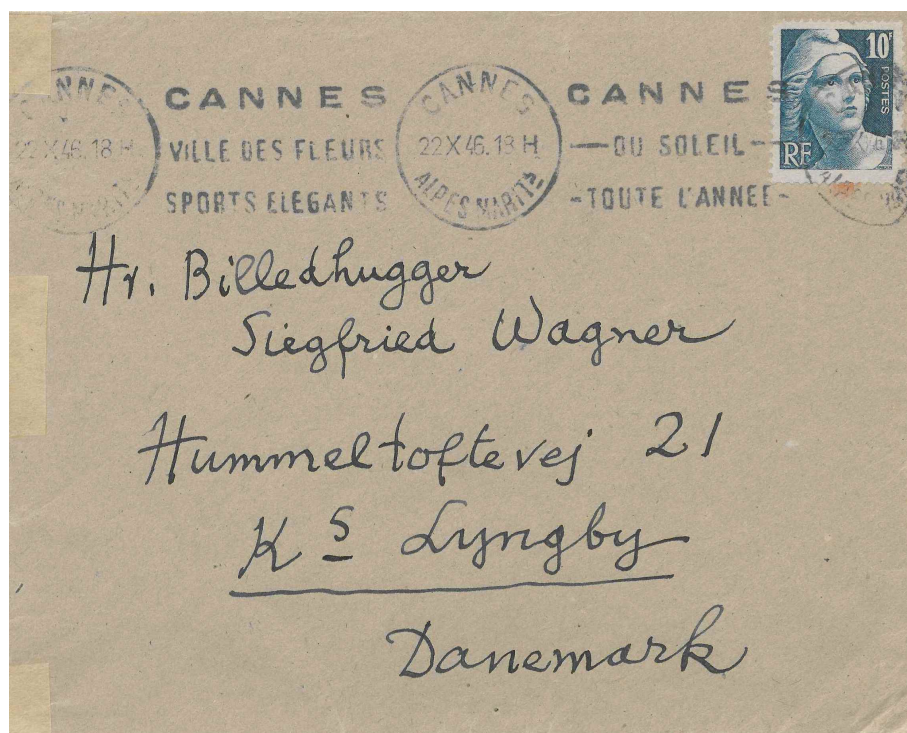 CANNES
22 X 46. 18 H
CANNES
VILLE DES FLEURS
SPORTS ELEGANTS
CANNES
22 X 46. 18 H
ALPES MARITS
CANNES
DU SOLEIL
-TOUTE L'ANNEE-
10F
POSTES
RF
Hr. Billedhugger
Siegfried Wagner
Hummeltoftevej 21
Ks Lyngby
Danemark